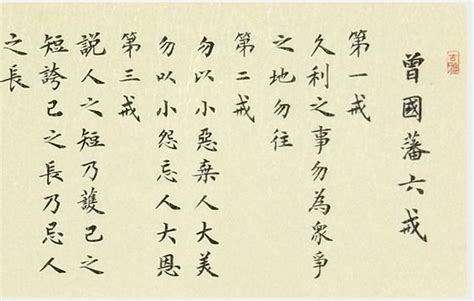 曾國藩六戒
第一戒
久利之事勿為衆爭
之地勿往
第二戒
勿以小惡棄人大美
勿以小怨忘人大恩
第三戒
説人之短乃護己之
短誇己之長乃忌人
之長